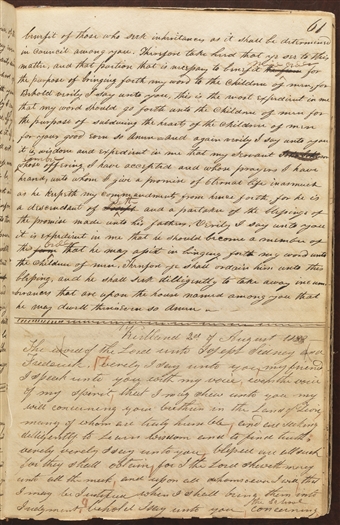 61
benefit of those who seek inheritances as it shall be determined
in council among you. Therefore take heed that ye see to this
matter, and that portion that is necessary to benefit for
the purpose of bringing forth my word to the children of men, for
Behold verily I say unto you, this is the most expedient in me
that my word should go forth unto the Children of men for
the purpose of subduing the hearts of the children of men
for your good even so Amen And again verily I say unto you
it is wisdom and expedient in me that my servant
whose offering I have accepted and whose prayers I have
heard, unto whom I give a promise of Eternal life inasmuch
as he keepeth my commandments from hence forth, for he is
a descendant of and a partaker of the blessings of
the promise made unto his fathers. Verily I say unto you
it is expedient in me that he should become a member of
this that he may assist in bringing forth my word unto
the Children of men, Therefore ye shall ordain him unto this
blessing, and he shall seek diligently to take away incum
brances that are upon the house named among you that
he may dwell therein even so Amen
Kirtland 2d of August 1833
The word of the Lord unto Joseph Sidney and
Frederick, verely I say unto you my friends
I speak unto you with my voice, even the voice
of my spirit, that I may shew unto you my
will concerning your bretheren in the Land of Zion
many of whom are truly humble, and are seeking
dilligently to Learn wisdom and to find truth,
verely verely I say unto you blessed are all such
for they shall obtain, for I the Lord sheweth mercy
unto all the meek, and upon all whomsoever I will that
I may be Justified when I shall bring them into
Judgment, Behold I say unto you concerning